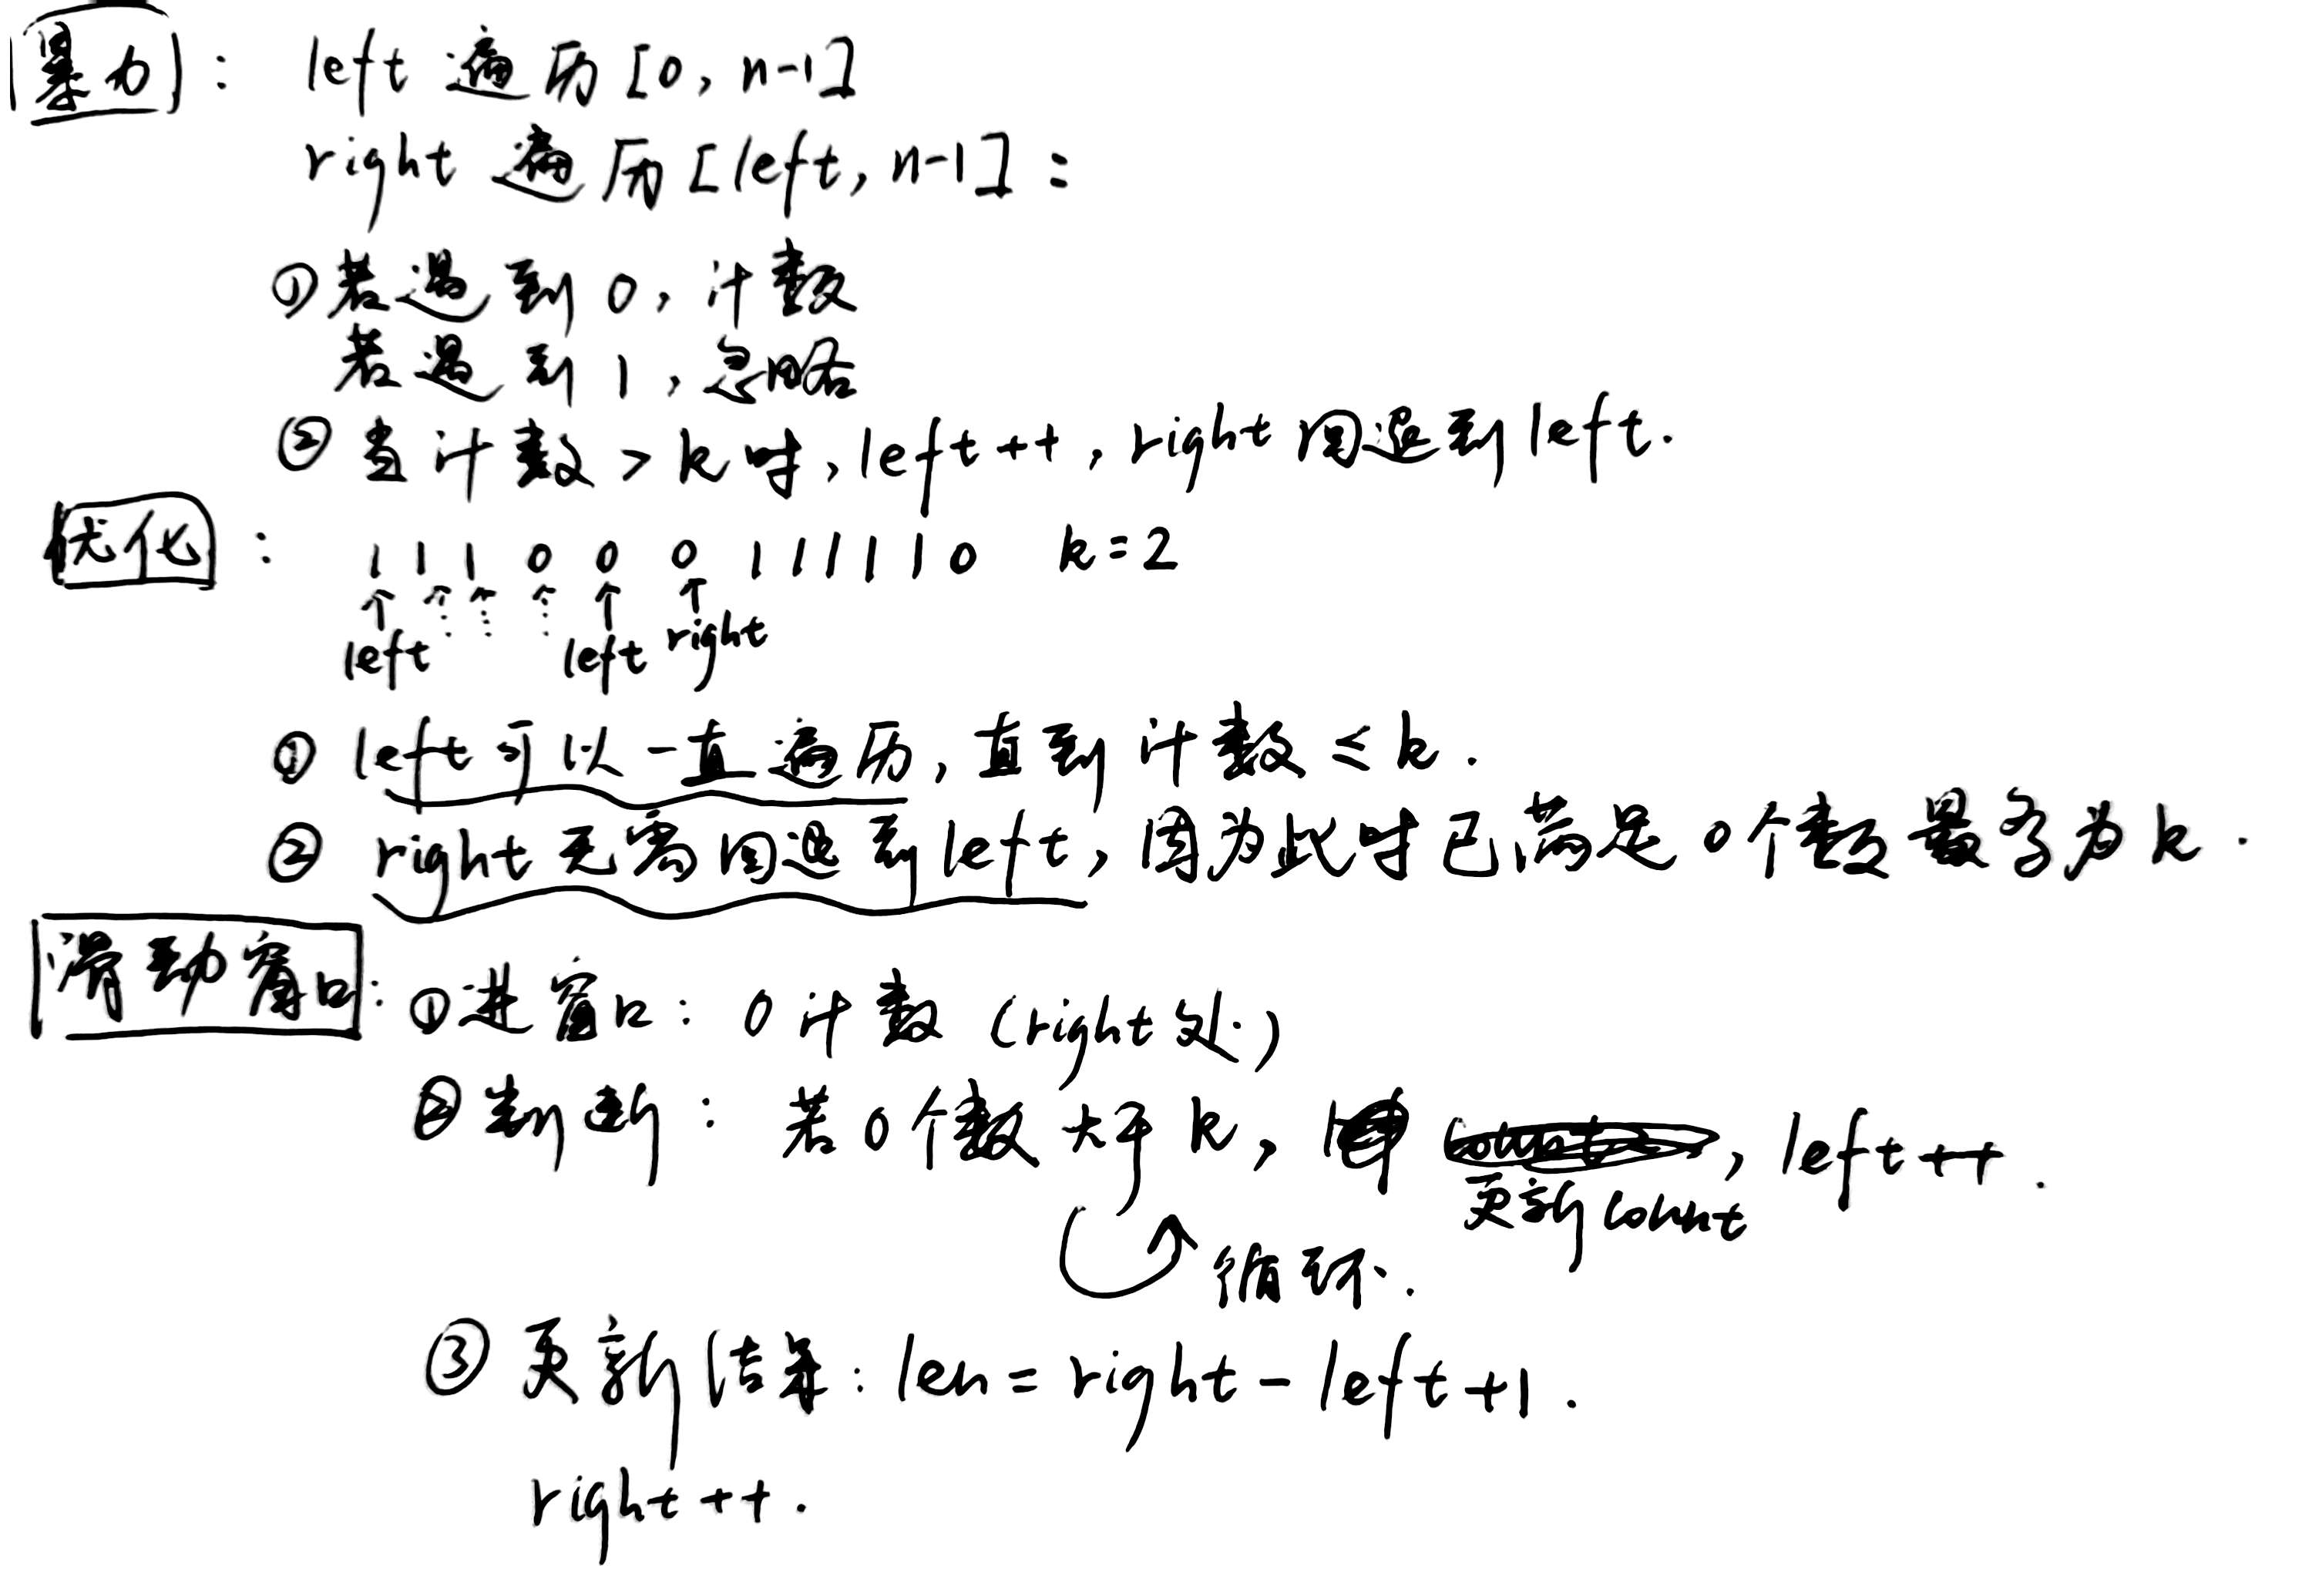 暴力：left 遍历[0, n-1]
right 遍历[left, n-1]：
①若遇到0，计数
若遇到1，忽略
②当计数>k时，left++，right回退到left.
优化：1 1 1 0 0 0 1 1 1 1 1 0 k=2
left left right
① left可以一直遍历，直到计数≤k.
② right无需回退到left，因为此时已满足0个数最多为k.
滑动窗口：①进窗口：0计数 (right处)
②判断：若0个数大于k，更新count，left++.
循环.
③更新结果：len=right-left+1.
right++.